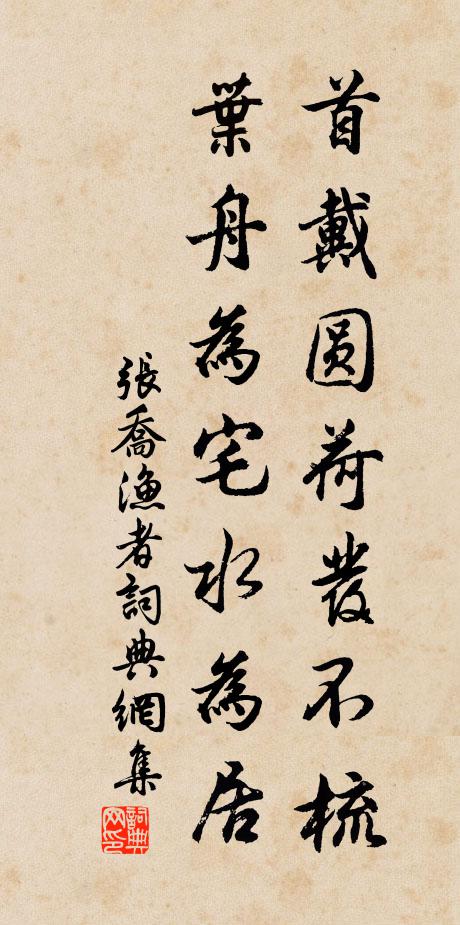 首戴圆荷发不梳
葉舟為宅水為居
張喬漁者詞典網集
詞典网印